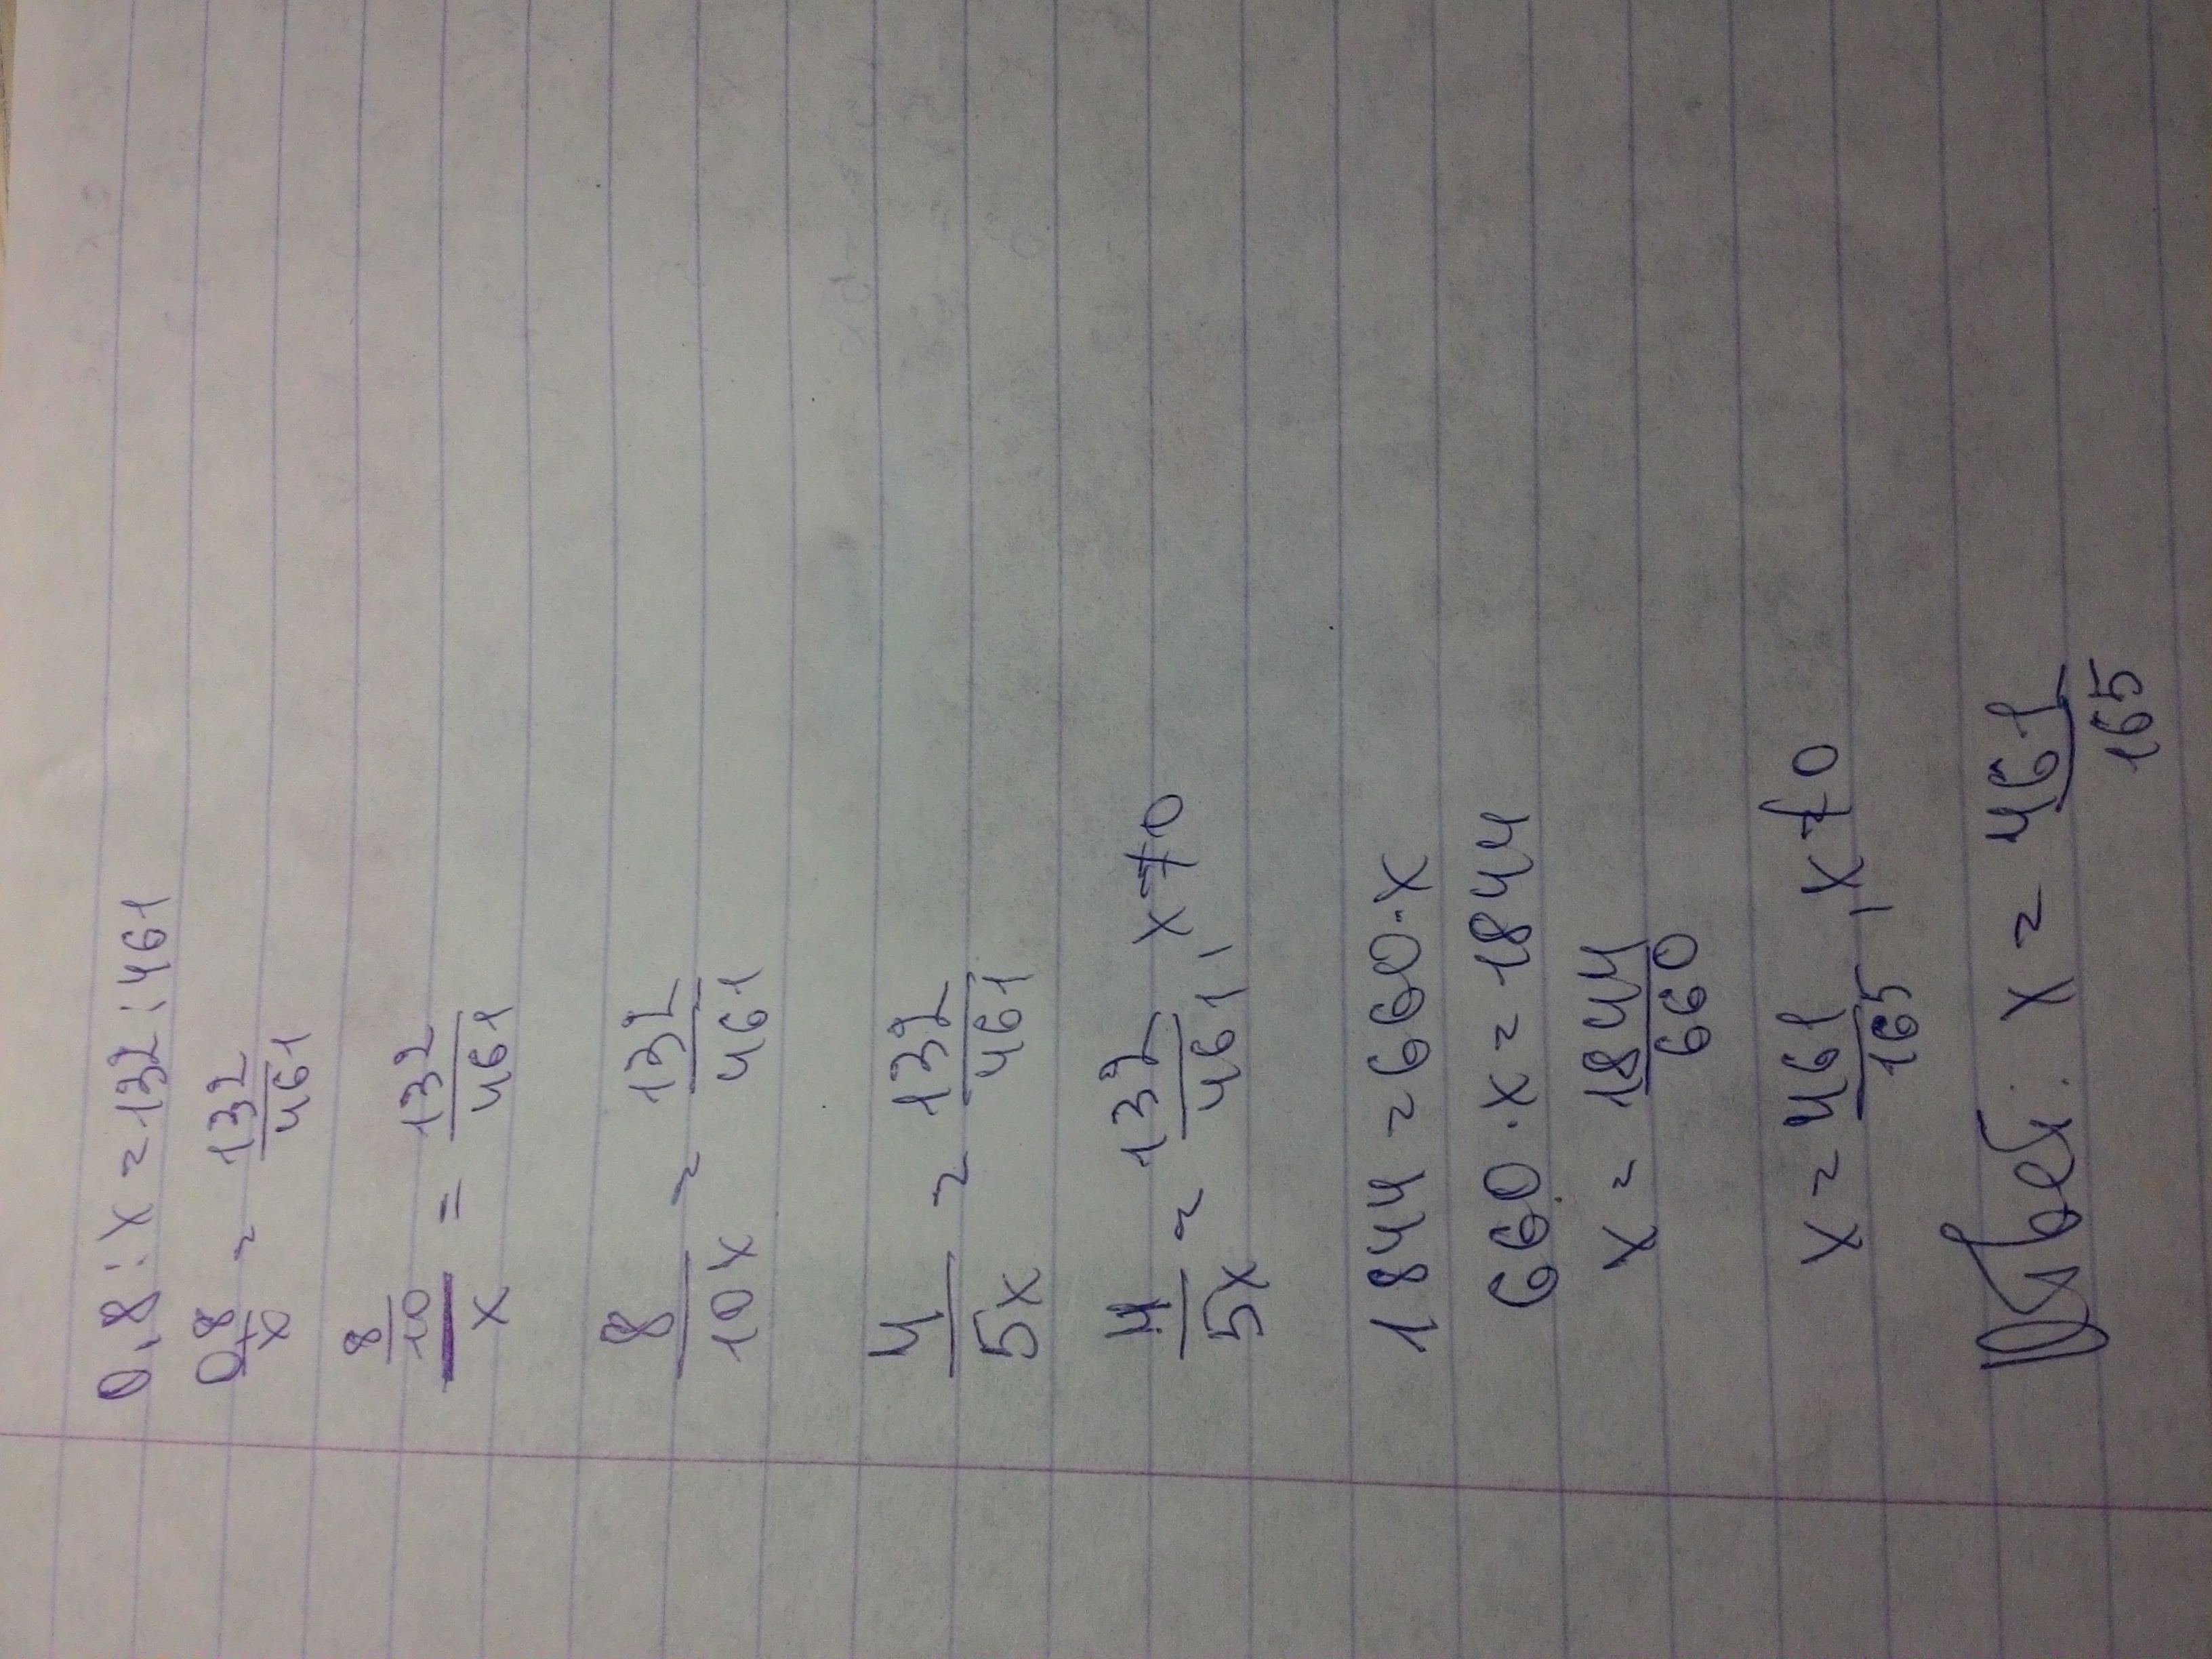 0,8 : x = 132 : 461
0,8/x = 132/461
8/10/x = 132/461
8/10x = 132/461
4/5x = 132/461
4/5x = 132/461, x ≠ 0
1844 = 660·x
660·x = 1844
x = 1844/660
x = 461/165, x ≠ 0
Ответ: x = 461/165